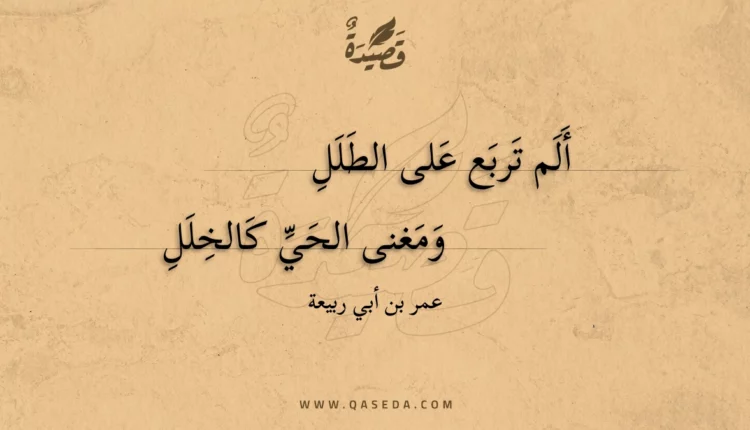 قَصِيْدَةٌ
أَلَم تَربَع عَلى الطَلَلِ
وَمَغنى الحَيِّ كَالخِلَلِ
عمر بن أبي ربيعة
WWW.QASEDA.COM